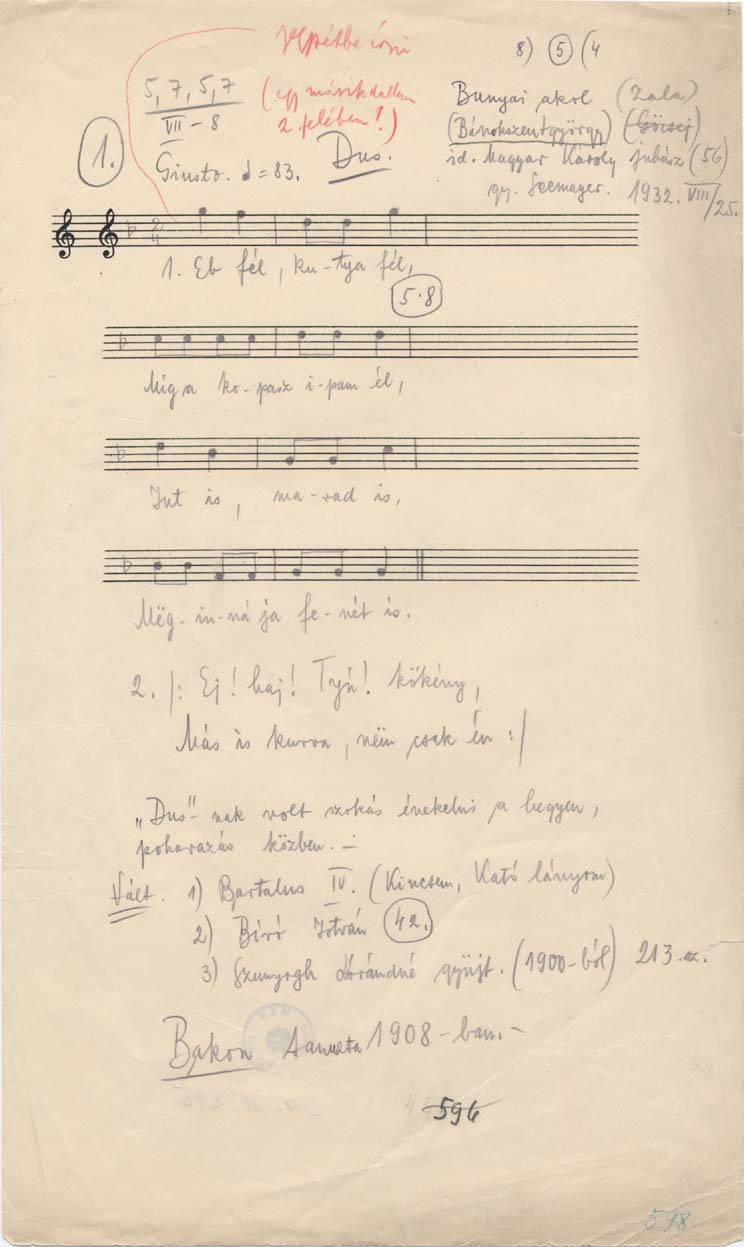 repétbe írni
8) 5 (4
5, 7, 5, 7
VII – 8
(egy másik dallam
2 felében!)
Bunyai akol (Zala)
(Bánokszentgyörgy) (Göcsej)
id. Magyar Károly juhász (56)
gy. Seemayer. 1932. VIII/25.
1.
Giusto. = 83.
Dus.
2
4
1. Eb fél, ku-tya fél,
5·8
Mig a ko-pasz i-pam él,
Jut is, ma-rad is,
Mëg-in-ná ja fe-nét is.
2. /: Ej! haj! Tyú! kökény,
Más is kurva, nëm csak én :/
„Dus"-nak volt szokás énekelni a hegyen,
poharazás közben. –
Vált. 1) Bartalus IV. (Kincsem, Kató lányom)
2) Bíró István 42.
3) Szunyogh Lórándné gyüjt. (1900-ból) 213. sz.
Bakon tanulta 1908-ban. –
596
598